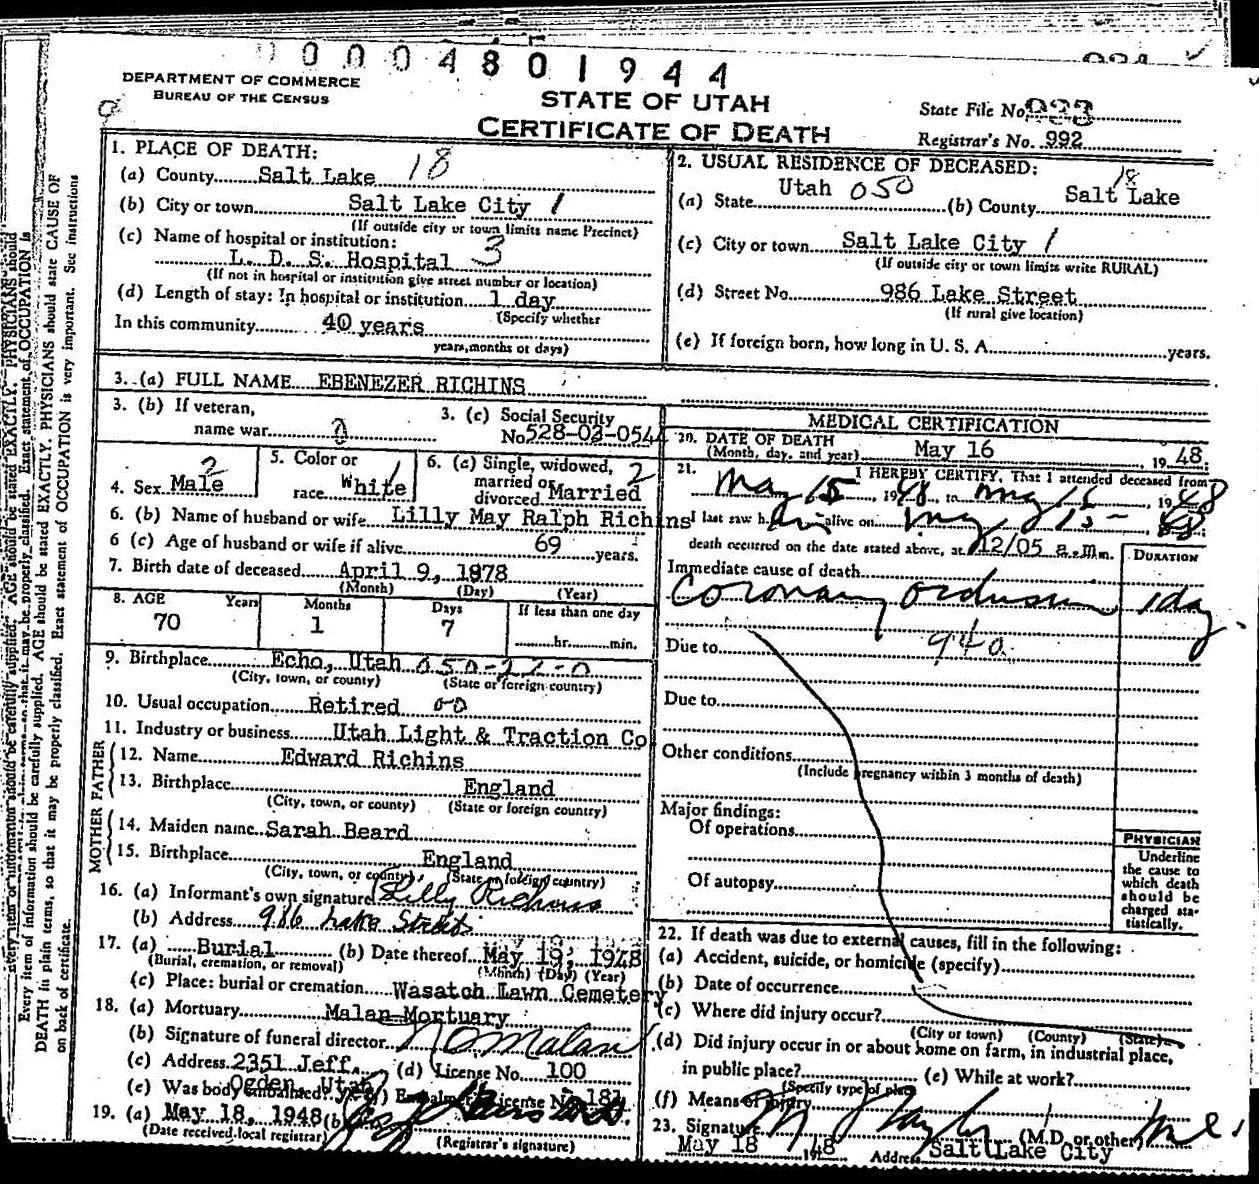 0004801944
DEPARTMENT OF COMMERCE
BUREAU OF THE CENSUS
STATE OF UTAH
CERTIFICATE OF DEATH
State File No. 933
Registrar's No. 992
Every item of information should be carefully supplied. AGE should be stated EXACTLY. PHYSICIANS should state CAUSE OF
DEATH in plain terms, so that it may be properly classified. Exact statement of OCCUPATION is very important. See instructions
on back of certificate.
1. PLACE OF DEATH:
(a) County Salt Lake 18
(b) City or town Salt Lake City 1
(If outside city or town limits name Precinct)
(c) Name of hospital or institution: 3
L. D. S. Hospital
(If not in hospital or institution give street number or location)
(d) Length of stay: In hospital or institution 1 day
(Specify whether
In this community 40 years
years, months or days)
2. USUAL RESIDENCE OF DECEASED:
(a) State Utah 050 (b) County Salt Lake 18
(c) City or town Salt Lake City 1
(If outside city or town limits write RURAL)
(d) Street No. 986 Lake Street
(If rural give location)
(e) If foreign born, how long in U. S. A. years.
3. (a) FULL NAME EBENEZER RICHINS
3. (b) If veteran,
name war 0
3. (c) Social Security
No. 528-03-0544
4. Sex Male 2
5. Color or
race White 1
6. (a) Single, widowed, 2
married or
divorced Married
6. (b) Name of husband or wife Lilly May Ralph Richins
6 (c) Age of husband or wife if alive 69 years.
7. Birth date of deceased April 9, 1878
(Month) (Day) (Year)
8. AGE Years Months Days If less than one day
70 1 7 hr. min.
9. Birthplace Echo, Utah 050-22-0
(City, town, or county) (State or foreign country)
10. Usual occupation Retired 00
11. Industry or business Utah Light & Traction Co
FATHER
12. Name Edward Richins
13. Birthplace England
(City, town, or county) (State or foreign country)
MOTHER
14. Maiden name Sarah Beard
15. Birthplace England
(City, town, or county) (State or foreign country)
16. (a) Informant's own signature Lilly Richins
(b) Address 986 Lake Street
17. (a) Burial (b) Date thereof May 19, 1948
(Burial, cremation, or removal) (Month) (Day) (Year)
(c) Place: burial or cremation Wasatch Lawn Cemetery
18. (a) Mortuary Malan Mortuary
(b) Signature of funeral director Malan
(c) Address 2351 Jeff. (d) License No. 100
Ogden, Utah
(e) Was body embalmed? yes (f) Embalmer's License No. 181
19. (a) May 18, 1948 (b)
(Date received local registrar) (Registrar's signature)
MEDICAL CERTIFICATION
20. DATE OF DEATH
(Month, day, and year) May 16 1948
21. I HEREBY CERTIFY, That I attended deceased from
May 15, 1948, to May 16 1948
I last saw him alive on May 15- 48
death occurred on the date stated above, at 12/05 a.m.
DURATION
Immediate cause of death
Coronary occlusion 1 day
Due to 94a
Due to
Other conditions
(Include pregnancy within 3 months of death)
Major findings:
Of operations
Of autopsy
PHYSICIAN
Underline
the cause to
which death
should be
charged sta-
tistically.
22. If death was due to external causes, fill in the following:
(a) Accident, suicide, or homicide (specify)
(b) Date of occurrence
(c) Where did injury occur?
(City or town) (County) (State)
(d) Did injury occur in or about home on farm, in industrial place,
in public place? (e) While at work?
(Specify type of place
(f) Means of injury
23. Signature (M.D. or other)
May 18 1948 Address Salt Lake City